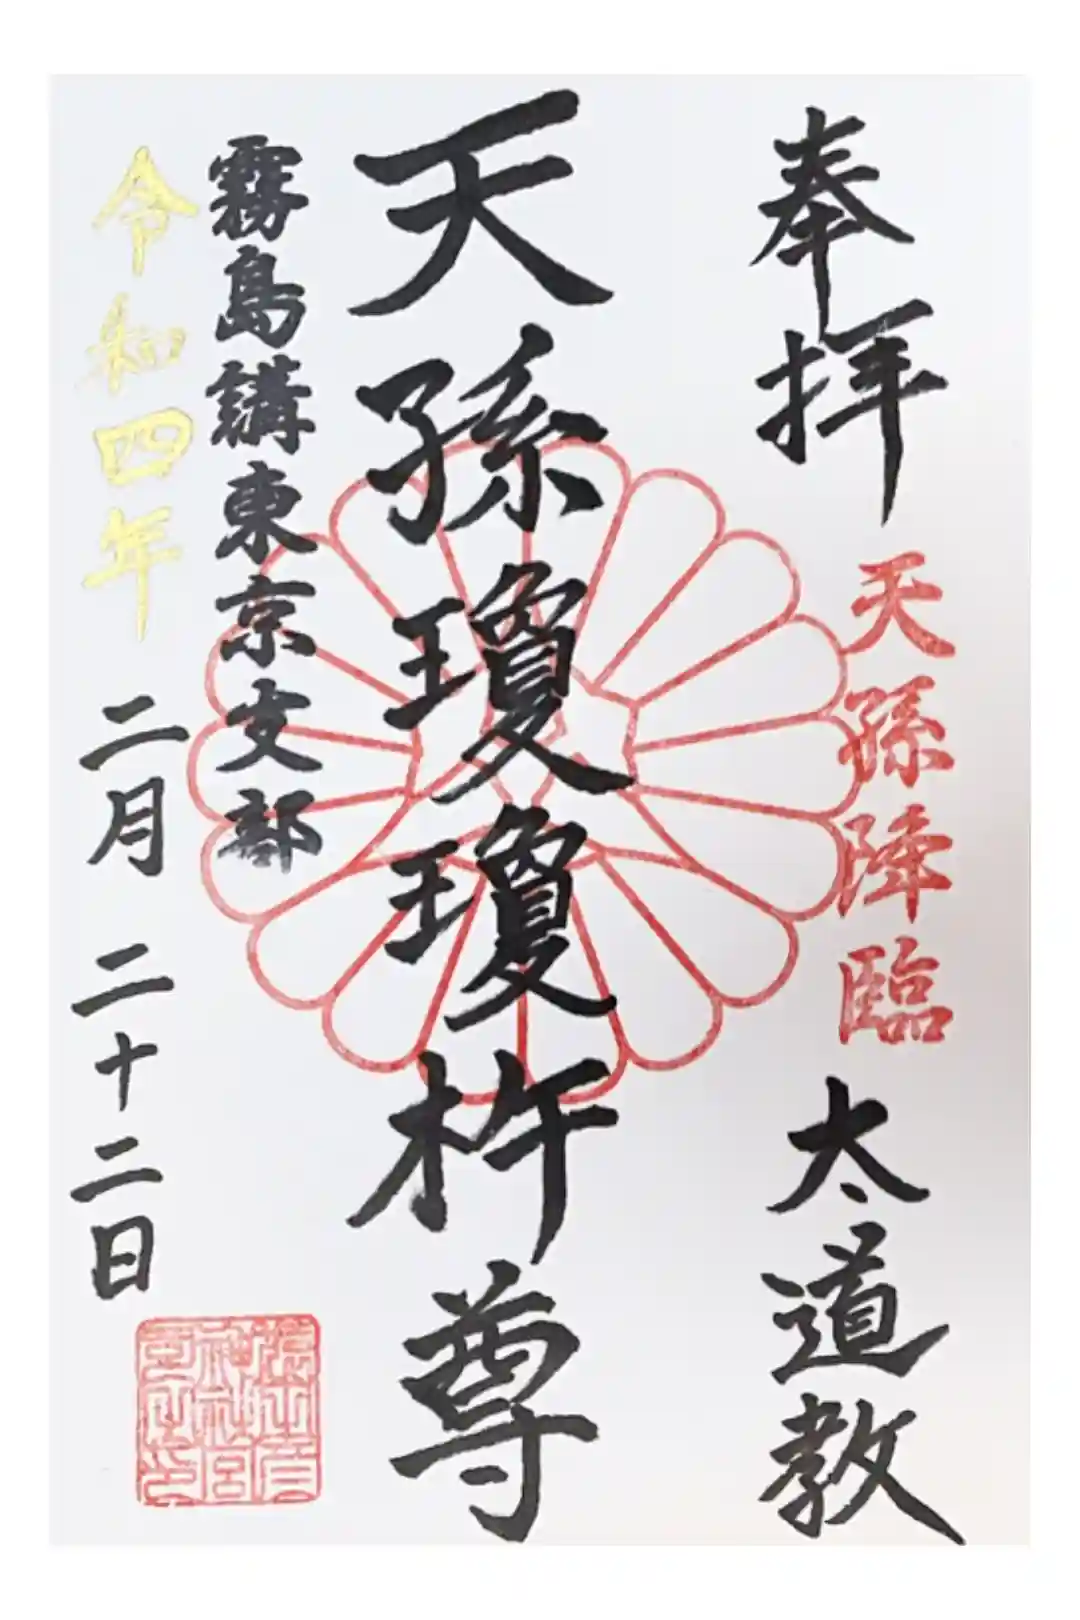 奉拝
天孫降臨
太道教
天孫瓊瓊杵尊
霧島講東京支部
令和四年
二月二十二日